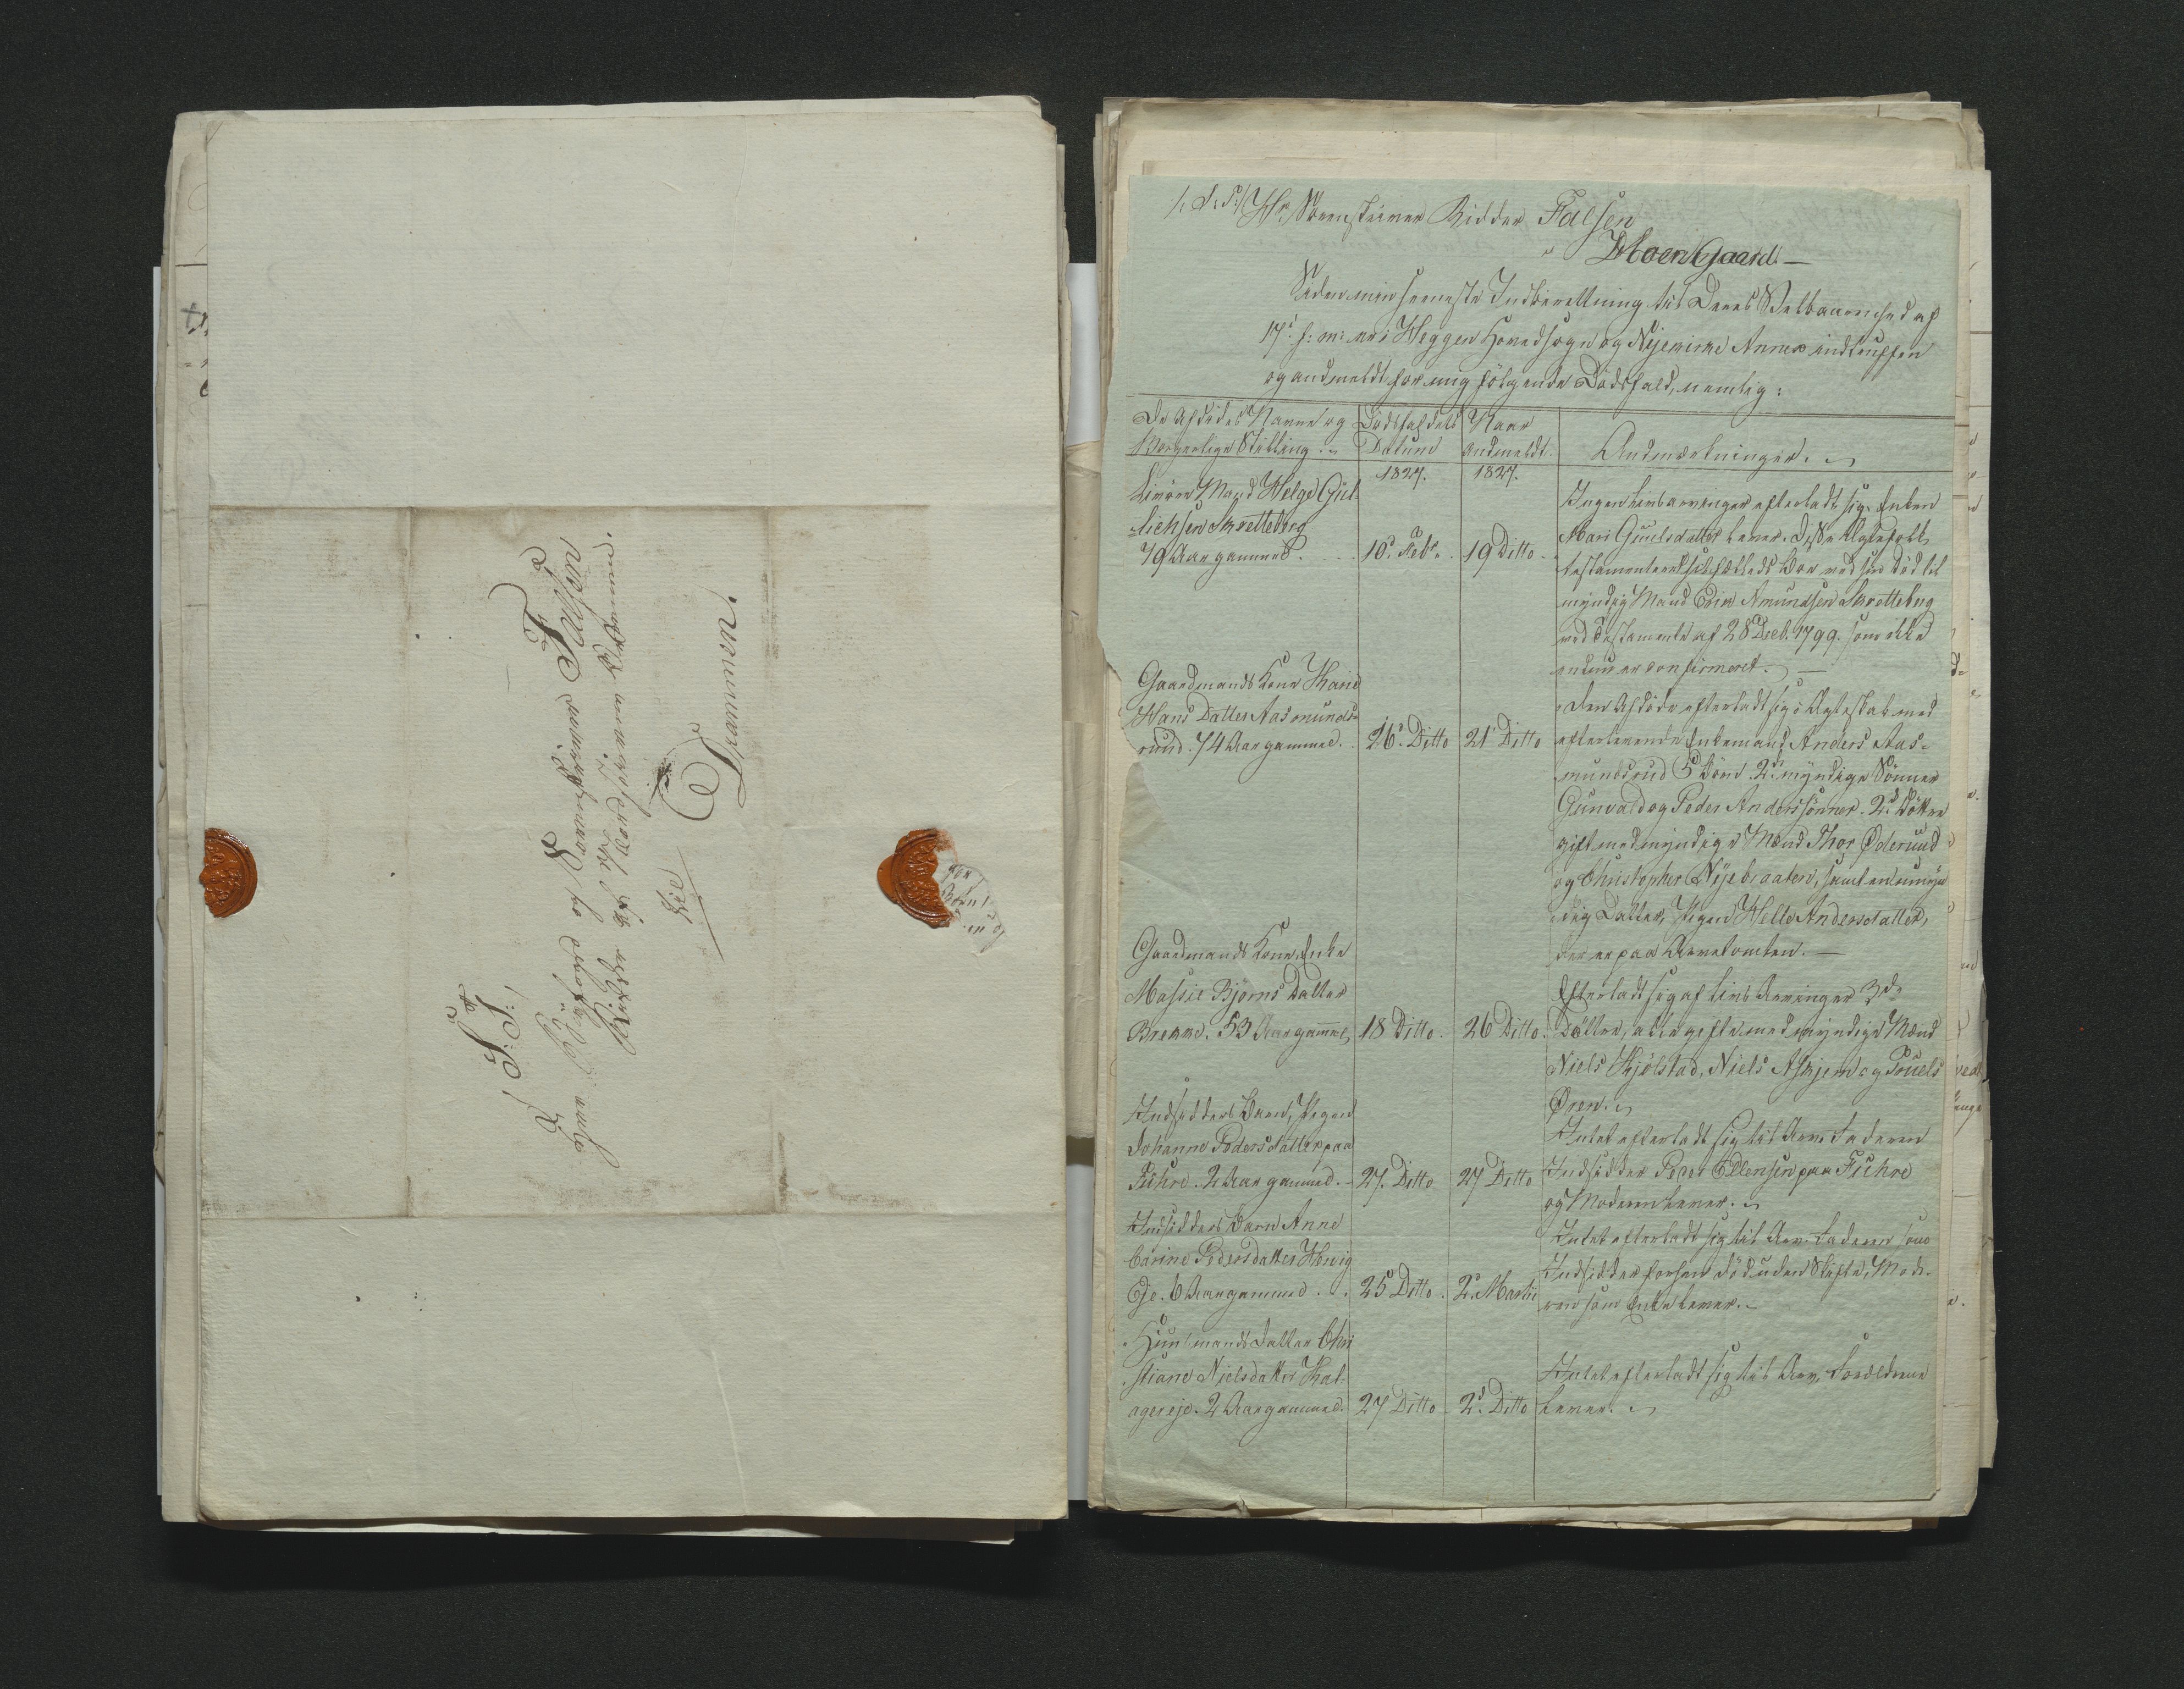 S: T:
Herr Byefoged og Sorenskriver Falsen
Ridder af Nordstjerne Ordenen.
til
Drammen.
/:S: T:/ Hr Sorenskriver Ridder Falsen
Hoen Gaard. —
Siden min seneste Indberettning til Deres Velbaarenhed af
17de f: m: er i Heggen Hovedsogn og Nykirke Annex indtruffen
og andmeldt for mig følgende Dødsfald, nemlig:
De Afdødes Navne og
Borgerlige Stilling.
Dødsfaldets
Datum
Naar
andmeldt.
Andmærkninger.
1827.
1827.
Mand Helge Gul-
lichsen Skretteberg
79 Aar gammel.
10d Febr.
19 Ditto
Ingen Livsarvinger efterladt sig. Enken
Mari Guulsdatter lever. Disse Ægtefolk
testamenterede ved sin Død til
myndig Mand Erik Amundsen Skretteberg
ved Testamente af 28 Decb. 1799. som ikke
endnu er confirmeret. —
Gaardmands Kone Marie
Hans Datter Aasmunds-
rud. 74 Aar gammel.
16d Ditto
21 Ditto
Den Afdøde efterladt sig i Ægteskab med
efterlevende Enkemand Anders Aas-
mundsrud 5 Børn 2de myndige Sønner
Gunvald og Peder Anderssønner. 2de Døttre
gift med myndige Mænd Thor Øderuud
og Christopher Nyebraaten, samt en umyn
dig Datter, Pigen Helle Andersdatter,
der er paa Arvetomten. —
Gaardmands Kone Enke
Massie Bjørns Datter
Brekke. 53 Aar gammel,
18 Ditto.
26 Ditto.
Efterladt sig af Livs Arvinger 3de
Døttre, alle gifte med myndige Mænd
Niels Kjølstad, Niels Askjem og Pouel
Øren.
Indsidders Barn, Pigen
Johanne Pedersdatter paa
Fuhre. 2 Aar gammel.
27. Ditto
27 Ditto
Intet efterladt sig til Arv. Faderen
Indsidder Peder Ellensen paa Fuhre
og Moderen lever.
Indsidders Barn Anne
Carine Pedersdatter
Eje. 6 Aar gammel.
25 Ditto.
2. Martii
Intet efterladt sig til Arv. Faderen som
Indsidder forhen død uden Skifte, Mode-
ren som Enke lever.
Huusmands Datter Chri
stiane Nielsdatter
agereje. 2 Aar gammel.
27 Ditto
2d Ditto
Intet efterladt sig til Arv. Forældrene
lever.